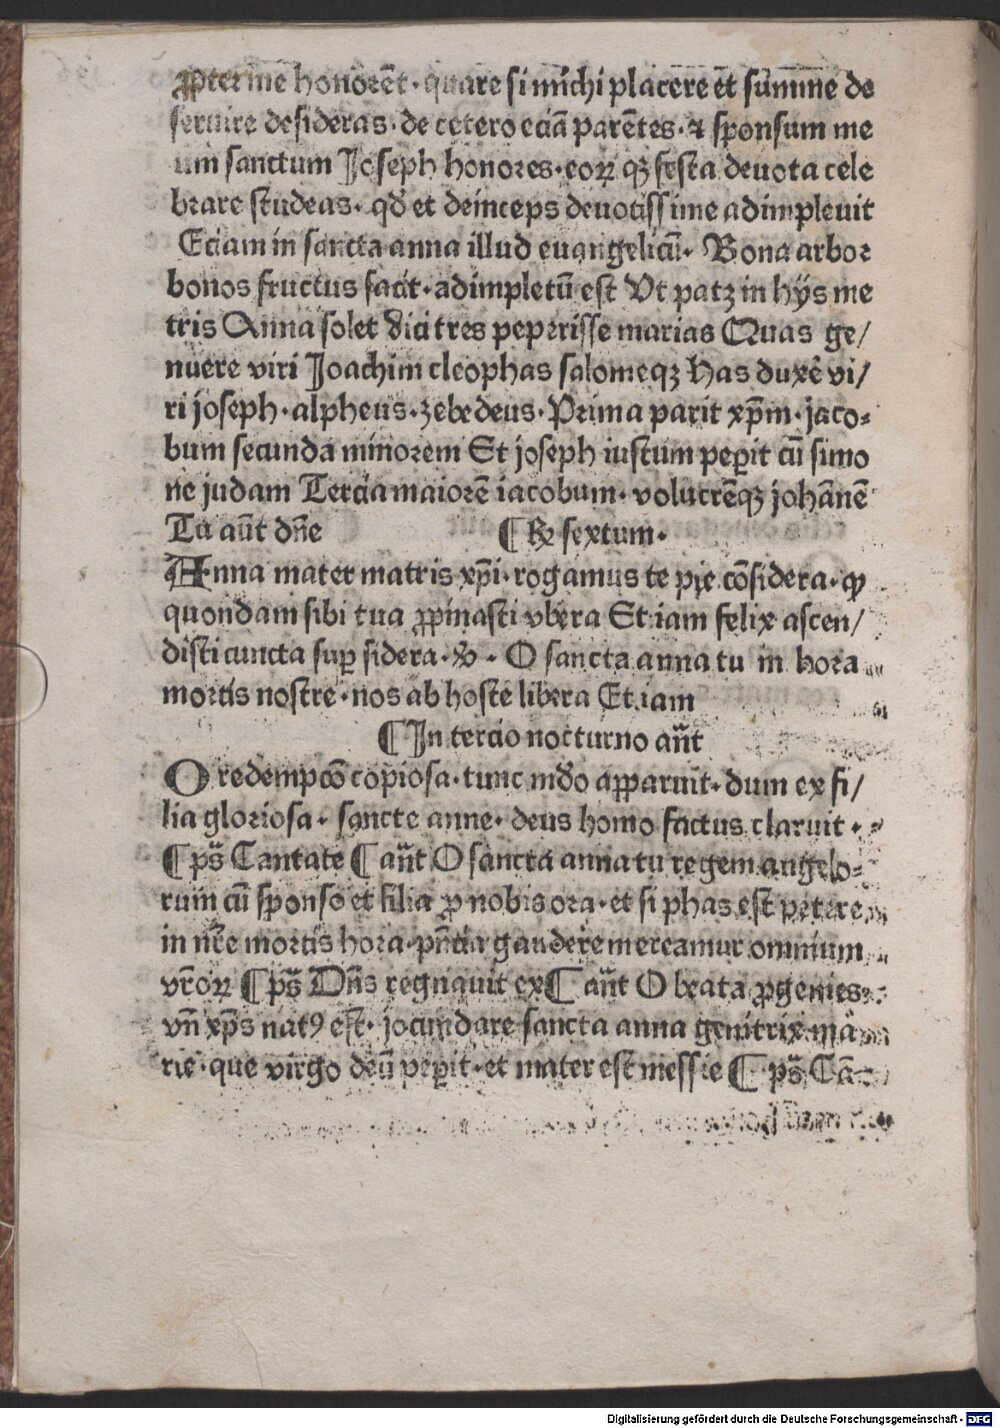 ꝓpter me honorēt · quare si michi placere et summe de
seruire desideras · de cetero eciā parētes · ⁊ sponsum me
um sanctum Joseph honores · eoꝝ qꝫ festa deuota cele
brare studeas · qđ et deinceps deuotissime adimpleuit
Eciam in sancta anna illud euangelicū · Bona arbor
bonos fructus facit · adimpletū est Vt patꝫ in hÿs me
tris Anna solet dici tres peperisse marias Quas ge/
nuere viri Joachim cleophas salomeqꝫ Has duxē vi/
ri joseph · alpheus · zebedeus · Prima parit xp̄m · jaco⸗
bum secunda minorem Et joseph iustum peꝑit cū simo
ne judam Tercia maiorē iacobum · volucrēqꝫ johānē
Tu aūt dn̄e ¶ ℟ sextum ·
Anna mater matris xp̄i · rogamus te pie cōsidera · ꝙ
quondam sibi tua ꝓpinasti vbera Et iam felix ascen/
disti cuncta suꝑ sidera · ℣ · O sancta anna tu in hora
mortis nostre · nos ab hoste libera Et iam
¶ In tercio nocturno an̄t
O redempcō copiosa · tunc mūdo apparuit · dum ex fi/
lia gloriosa · sancte anne · deus homo factus claruit ·
¶ ps̄ Cantate ¶ an̄t O sancta anna tu regem angelo⸗
rum cū sponso et filia ꝓ nobis ora · et si phas est petere
in nr̄e mortis hora · pn̄cia gaudere mereamur omnium
vr̄oꝝ ¶ ps̄ Dn̄s regnauit ex ¶ an̄t O beata ꝓgenies
vn̄ xp̄s natꝰ est · jocundare sancta anna genitrix ma
rie · que virgo deū peꝑit · et mater est messie ¶ ps̄ Cā
Digitalisierung gefördert durch die Deutsche Forschungsgemeinschaft - DFG